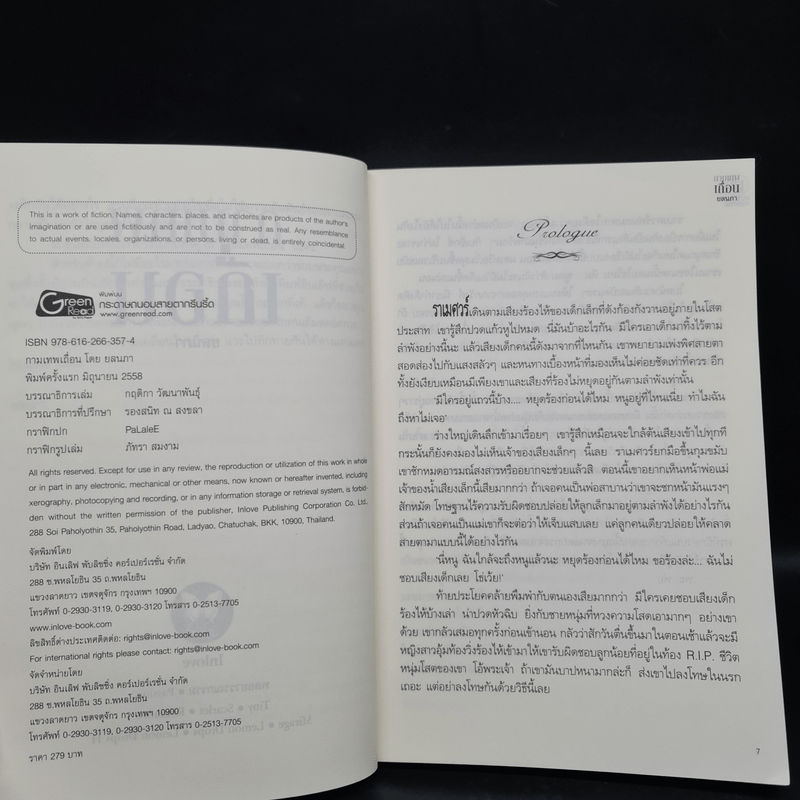 This is a work of fiction. Names, characters, places, and incidents are products of the author's
imagination or are used fictitiously and are not to be construed as real. Any resemblance
to actual events, locales, organizations, or persons, living or dead, is entirely coincidental.
Green Read
พิมพ์บน
กระดาษถนอมสายตากรีนรี้ด
www.greenread.com
ISBN 978-616-266-357-4
กามเทพเถื่อน โดย ยลนภา
พิมพ์ครั้งแรก มิถุนายน 2558
บรรณาธิการเล่ม กฤติกา วัฒนาพันธุ์
บรรณาธิการที่ปรึกษา รองสนิท ณ สงขลา
กราฟิกปก PaLaleE
กราฟิกรูปเล่ม ภัทรา สมงาม
All rights reserved. Except for use in any review, the reproduction or utilization of this work in whole
or in part in any electronic, mechanical or other means, now known or hereafter invented, including
xerography, photocopying and recording, or in any information storage or retrieval system, is forbid-
den without the written permission of the publisher, Inlove Publishing Corporation Co., Ltd.,
288 Soi Paholyothin 35, Paholyothin Road, Ladyao, Chatuchak, BKK, 10900, Thailand.
จัดพิมพ์โดย
บริษัท อินเลิฟ พับลิชชิ่ง คอร์เปอร์เรชั่น จำกัด
288 ซ.พหลโยธิน 35 ถ.พหลโยธิน
แขวงลาดยาว เขตจตุจักร กรุงเทพฯ 10900
โทรศัพท์ 0-2930-3119, 0-2930-3120 โทรสาร 0-2513-7705
www.inlove-book.com
ลิขสิทธิ์ต่างประเทศติดต่อ: rights@inlove-book.com
For international rights please contact: rights@inlove-book.com
จัดจำหน่ายโดย
บริษัท อินเลิฟ พับลิชชิ่ง คอร์เปอร์เรชั่น จำกัด
288 ซ.พหลโยธิน 35 ถ.พหลโยธิน
แขวงลาดยาว เขตจตุจักร กรุงเทพฯ 10900
โทรศัพท์ 0-2930-3119, 0-2930-3120 โทรสาร 0-2513-7705
ราคา 279 บาท
กามเทพ
เถื่อน
ยลนภา
Prologue
ราเมศวร์เดินตามเสียงร้องไห้ของเด็กเล็กที่ดังก้องกังวานอยู่ภายในโสต
ประสาท เขารู้สึกปวดแก้วหูไปหมด นี่มันบ้าอะไรกัน มีใครเอาเด็กมาทิ้งไว้ตาม
ลำพังอย่างนี้นะ แล้วเสียงเด็กคนนี้ดังมาจากที่ไหนกัน เขาพยายามเพ่งพิศสายตา
สอดส่องไปกับแสงสลัวๆ และหนทางเบื้องหน้าที่มองเห็นไม่ค่อยชัดเท่าที่ควร อีก
ทั้งยังเงียบเหมือนมีเพียงเขาและเสียงที่ร้องไม่หยุดอยู่กันตามลำพังเท่านั้น
'มีใครอยู่แถวนี้บ้าง.... หยุดร้องก่อนได้ไหม หนูอยู่ที่ไหนเนี่ย ทำไมฉัน
ถึงหาไม่เจอ'
ร่างใหญ่เดินลึกเข้ามาเรื่อยๆ เขารู้สึกเหมือนจะใกล้ต้นเสียงเข้าไปทุกที
กระนั้นก็ยังคงมองไม่เห็นเจ้าของเสียงเล็กๆ นี้เลย ราเมศวร์ยกมือขึ้นกุมขมับ
เขาชักหมดอารมณ์สงสารหรืออยากจะช่วยแล้วสิ ตอนนี้เขาอยากเห็นหน้าพ่อแม่
เจ้าของน้ำเสียงเล็กนี้เสียมากกว่า ถ้าเจอคนเป็นพ่อสาบานว่าเขาจะชกหน้ามันแรงๆ
สักหมัด โทษฐานไร้ความรับผิดชอบปล่อยให้ลูกเล็กมาอยู่ตามลำพังได้อย่างไรกัน
ส่วนถ้าเจอคนเป็นแม่เขาก็จะต่อว่าให้เจ็บแสบเลย แค่ลูกคนเดียวปล่อยให้คลาด
สายตามาแบบนี้ได้อย่างไรกัน
'นี่หนู ฉันใกล้จะถึงหนูแล้วนะ หยุดร้องก่อนได้ไหม ขอร้องล่ะ... ฉันไม่
ชอบเสียงเด็กเลย โธ่เว้ย!'
ท้ายประโยคคล้ายพึมพำกับตนเองเสียมากกว่า มีใครเคยชอบเสียงเด็ก
ร้องไห้บ้างเล่า น่าปวดหัวฉิบ ยิ่งกับชายหนุ่มที่หวงความโสดเอามากๆ อย่างเขา
ด้วย เขากลัวเสมอทุกครั้งก่อนเข้านอน กลัวว่าสักวันตื่นขึ้นมาในตอนเช้าแล้วจะมี
หญิงสาวอุ้มท้องวิ่งร้องไห้เข้ามาให้เขารับผิดชอบลูกน้อยที่อยู่ในท้อง R.I.P. ชีวิต
หนุ่มโสดของเขา โอ้พระเจ้า ถ้าเขามันบาปหนามากล่ะก็ ส่งเขาไปลงโทษในนรก
เถอะ แต่อย่าลงโทษกันด้วยวิธีนี้เลย
7